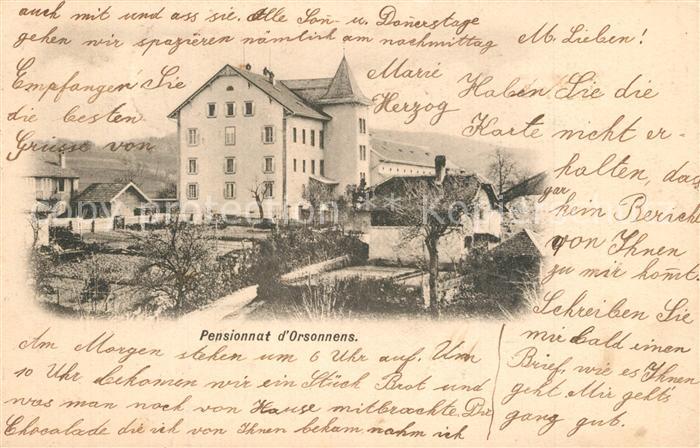 auch mit und ass sie. Alle Son- u. Donerstage
gehen wir spazieren nämlich am nachmittag
M. Lieben!
Empfangen Sie
die besten
Grüsse von
Marie
Herzog
Haben Sie die
Karte nicht er-
halten, das
gar
kein Bericht
von Ihnen
zu mir komt.
Schreiben Sie
mir bald einen
Brief, wie es Ihnen
geht. Mir geht's
ganz gut.
Pensionnat d'Orsonnens.
Am Morgen stehen um 6 Uhr auf. Um
10 Uhr bekomen wir ein Stück Brot und
was man noch von Hause mitbrachte. Die
Chocolade die ich von Ihnen bekam nahm ich